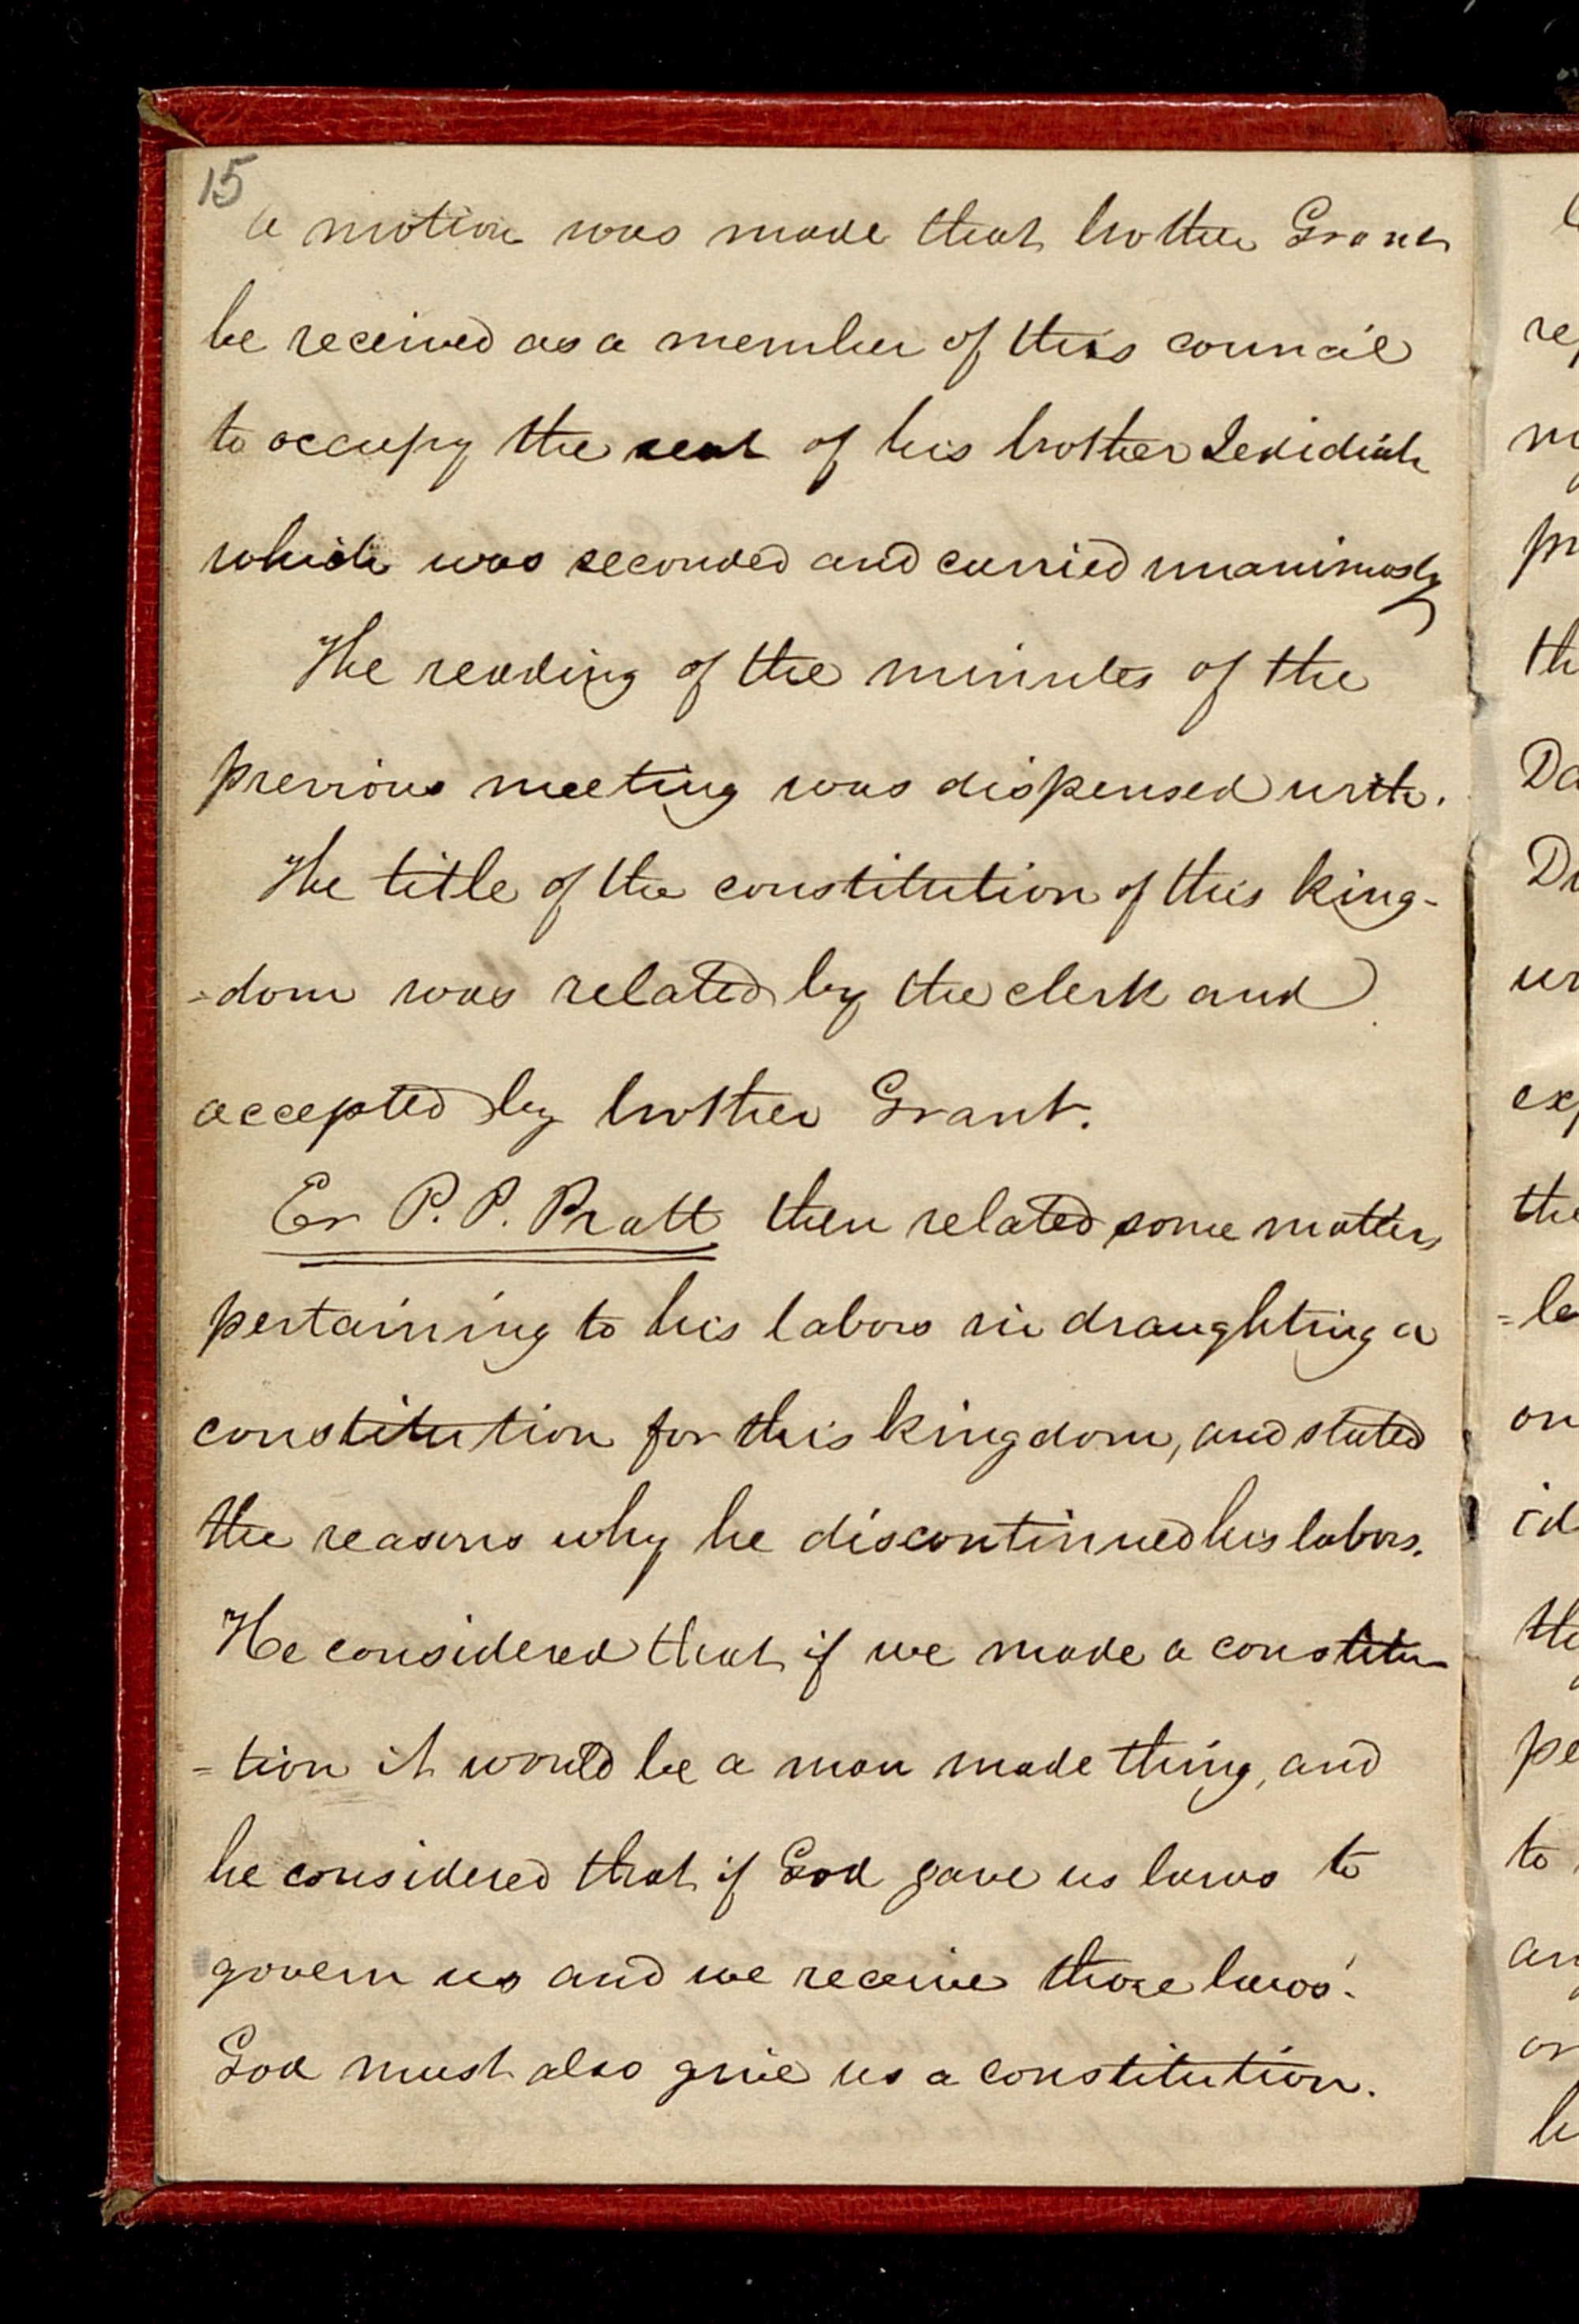 15
a motion was made that brother Grant
be received as a member of this council
to occupy the seat of his brother Jedidiah
which was seconded and carried unanimosly
The reading of the minutes of the
previous meeting was dispensed with.
The title of the constitution of this king-
=dom was related by the clerk and
accepted by brother Grant.
Er P. P. Pratt then related some matters
pertaining to his labors in draughting a
constitution for this kingdom, and stated
the reasons why he discontinued his labors.
He considered that if we made a constitu-
=tion it would be a man made thing, and
he considered that if God gave us laws to
govern us and we receive those laws.
God must also give us a constitution.
re
m
p
th
Da
D
un
exp
the
=le
on
id
th
pe
to
an
or
h